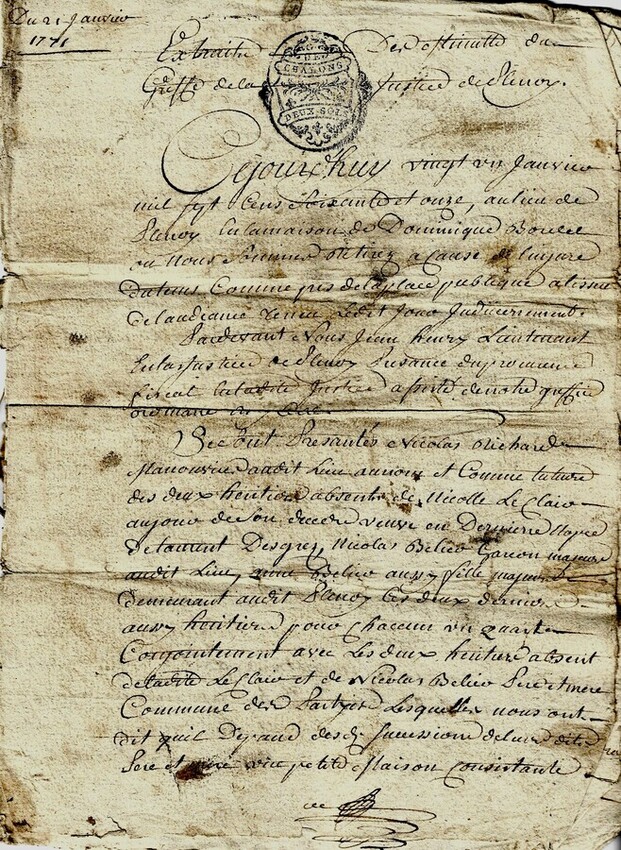 Du 21 Janvier
1771
Extrait Des Minutte du
Greffe de la Justice de Flenoy.
DE
LEYRONS
DEUX SOLS
Cejourd'huy vingt un Janvier
mil sept Cens Soixante et onze, au lieu de
Flenoy En la maison de Dominique
ou Nous Sommes Retirez a Cause de linjure
du tems Comme pres de la place publique a lissue
de laudiance tenue Ledit Jour Judicierement
Pardevant Nous Jean henry Lieutenant
En la Justice de Flenoy Presance du procureur
fiscal En ladite Justice assisté de notre greffier
ordinaire
Se Sont Presantés Nicolas Richard
Manouvrier audit Lieu au nom et Comme tuteur
des deux heritier absents de Nicolle Le Clair
au jour de Son deceds veuve en Derniere Nopce
de Nicolas Belier Garcon majeure
audit Lieu, anne Belier aussy fille majeure
demeurant audit Flenoy Les deux dernier
aussy heritiere pour Chacun un quart
Conjointement avec Les deux heritier absent
de ladite Le Clair et de Nicolas Belier Pere et mere
Commune des Partyes Lesquelles nous ont
dit quil Depand des dt Succession de leur dits
Pere et mere une petite Maison Consistante